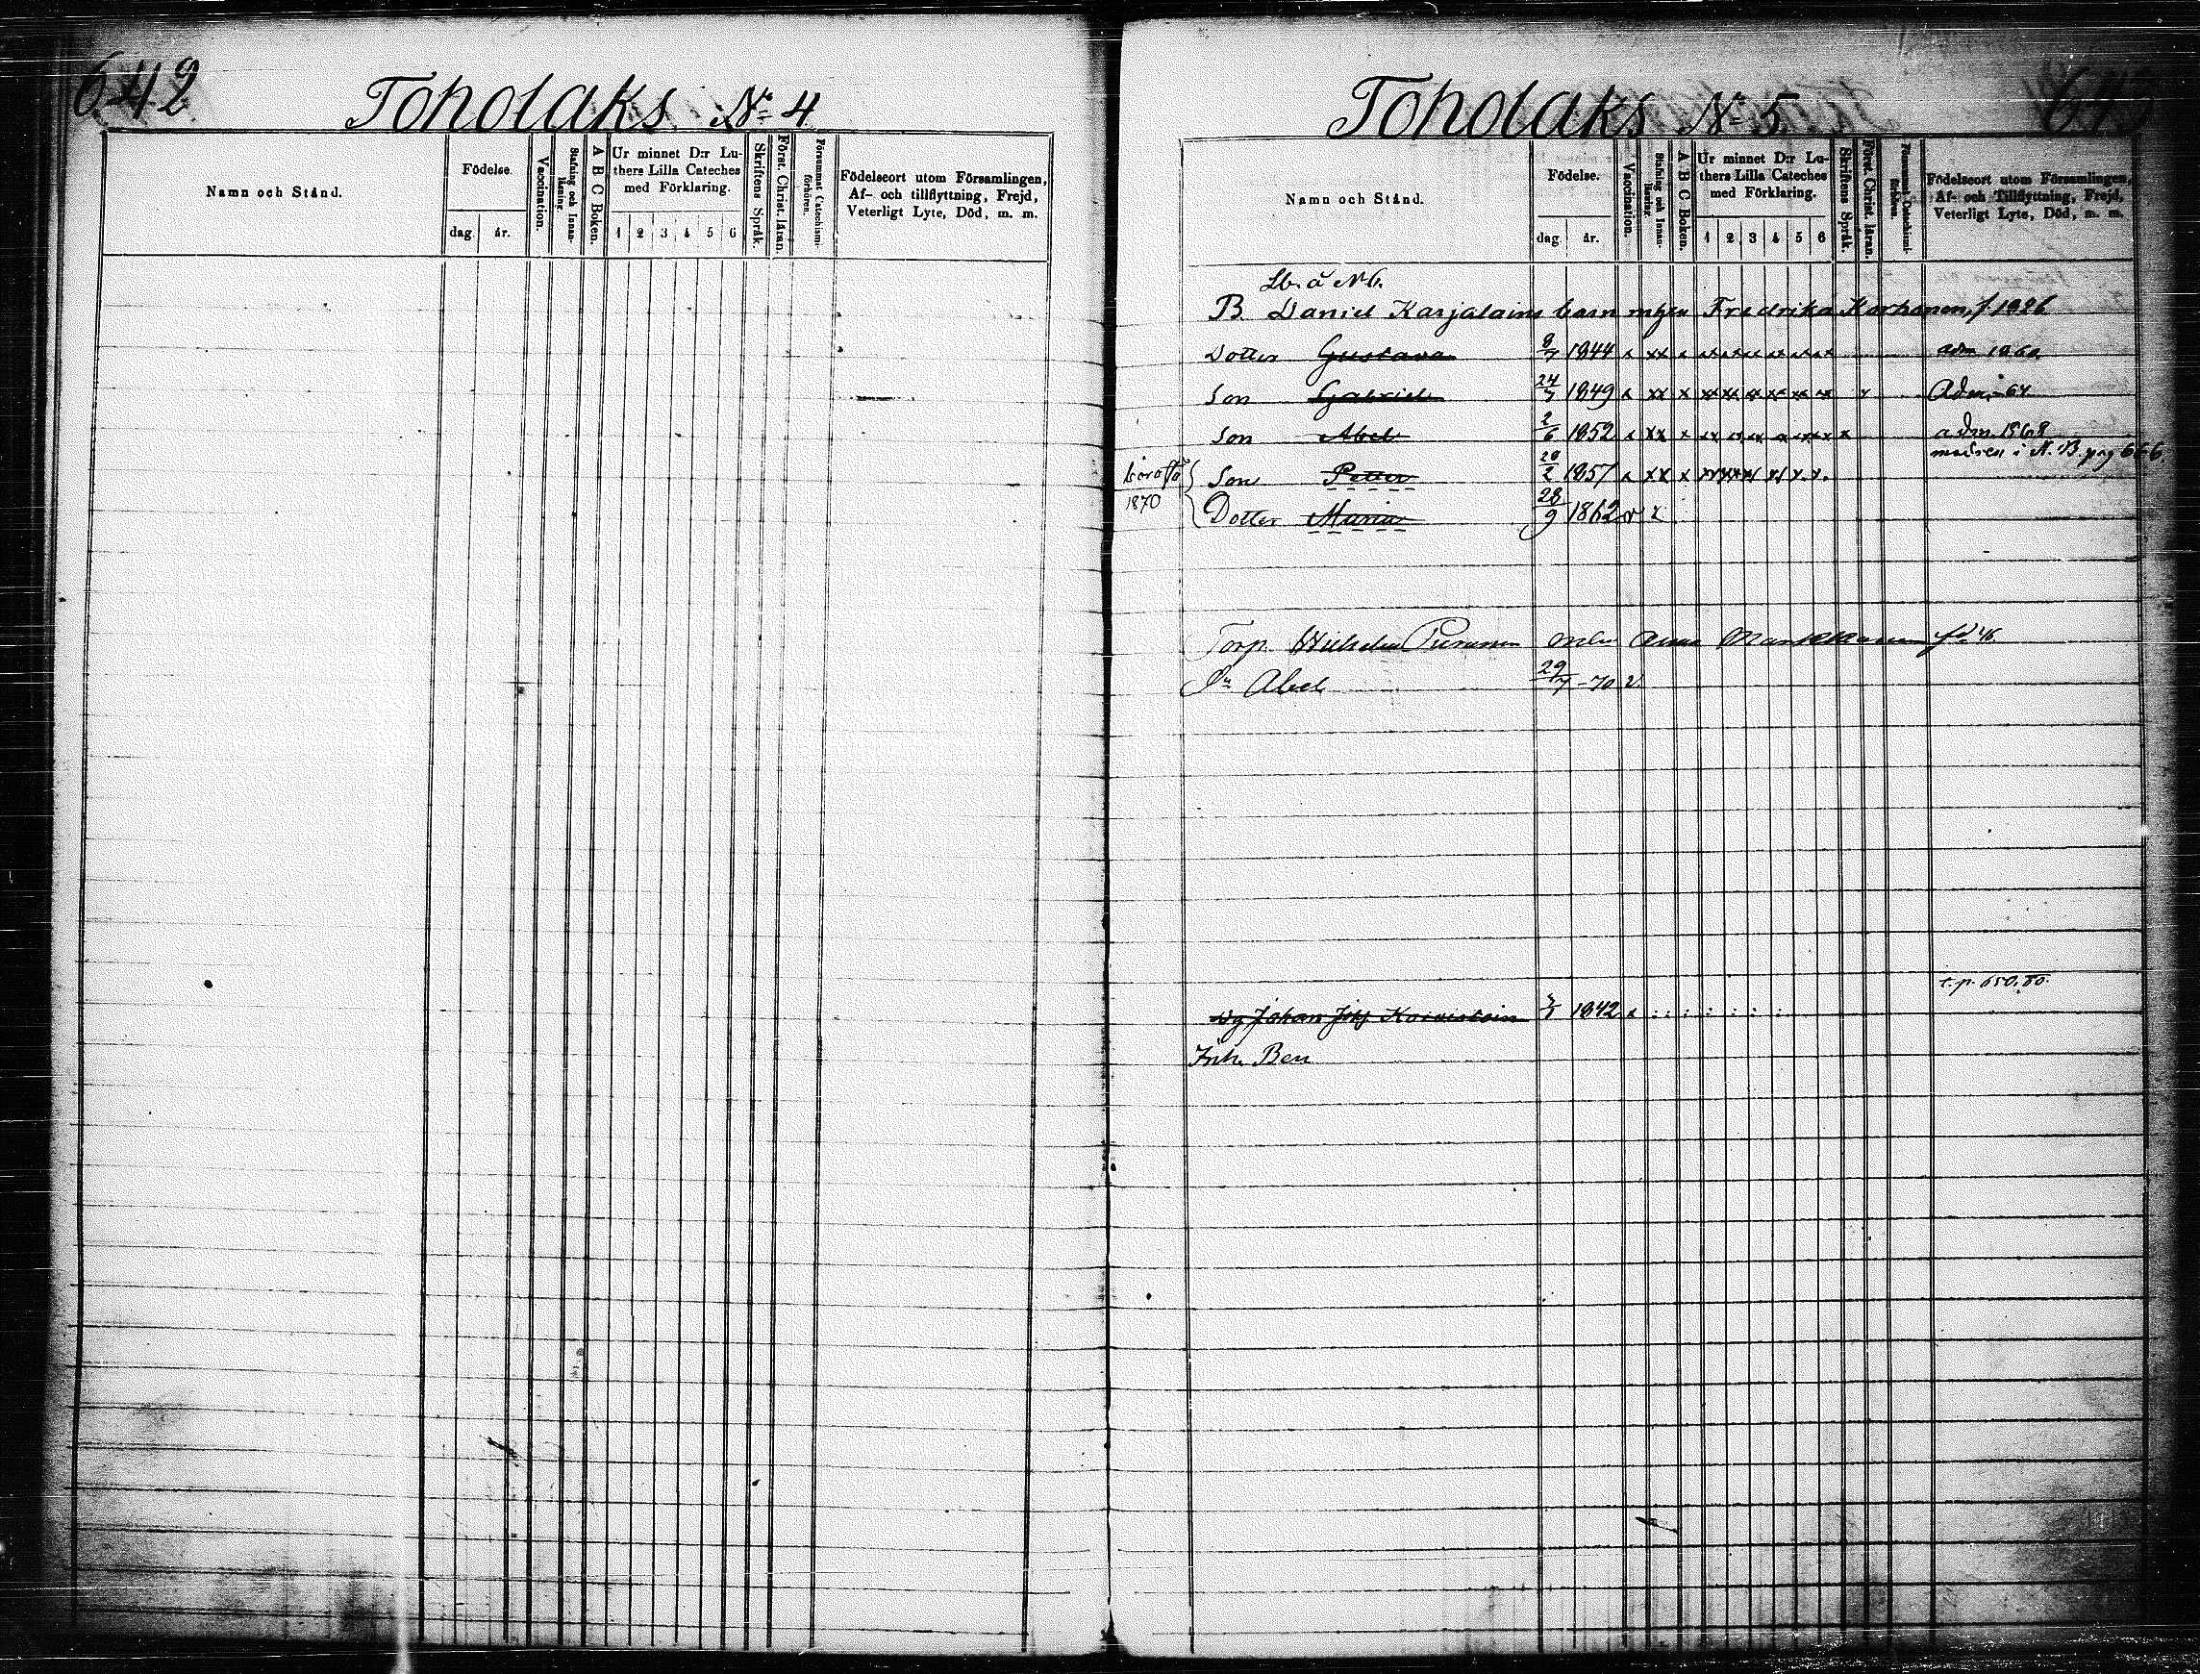 642
Toholaks N:o 4
Namn och Stånd.
Födelse.
dag.
år.
Vaccination.
Stafning och Innan-
läsning.
A B C Boken.
Ur minnet D:r Lu-
thers Lilla Cateches
med Förklaring.
1 2 3 4 5 6
Skriftens Språk.
Först. Christ. läran.
Försummat Catechismi-
förhören.
Födelseort utom Församlingen,
Af- och tillflyttning, Frejd,
Veterligt Lyte, Död, m. m.
Toholaks N:o 5
Namn och Stånd.
Födelse.
dag.
år.
Vaccination.
Stafning och Innan-
läsning.
A B C Boken.
Ur minnet D:r Lu-
thers Lilla Cateches
med Förklaring.
1 2 3 4 5 6
Skriftens Språk.
Först. Christ. läran.
Försummat Catechismi-
förhören.
Födelseort utom Församlingen,
Af- och Tillflyttning, Frejd,
Veterligt Lyte, Död, m. m.
Lb. å N 6.
B. Daniel Karjalains barn m Fredrika Korhonen, f. 1826
Dotter Gustava 8/7 1844 x xx x adm 1860
Son Gabriel 24/5 1849 x xx x Adm. 64
Son Abel 2/6 1852 x xx x adm. 1868
modren i N. B pag 666
Son Petter 20/2 1857 x xx x
1870
Dotter Maria 28/9 1862
Torp. Wilhelm Anna 46
Sn Abel 29/7 -70 v
t. p. 650.80.
Dg Johan 1842
Ben